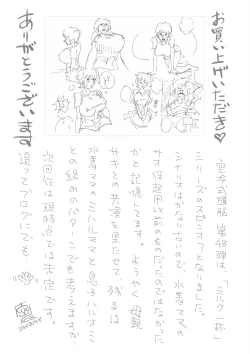 お買い上げいただき♡
ありがとうございます
空冷式頭脳 第48弾は、「ミルク一杯」
シリーズのスピンオフとなりました。
シナリオはかなり古いので、水着ママの
サオ役起用以前のものだったのではなかった
かと記憶してます。ようやく母親
サキとの共演を果たせて、残るは
水着ママのミハルママと息子ハルオミ
との絡みのパターンでも考えますが
次回作は現時点では未定です。
追ってブログにでも。